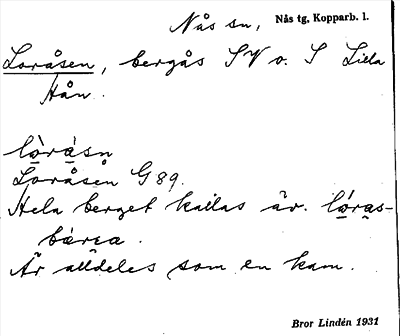 Nås sn, Nås tg, Kopparb. l.
Loråsen, bergås SV o. S Lilla
Hån.
lò̱rà̱sn
Loråsen G89.
Hela berget kallas äv. ló̱ra̱s-
bæ̀rɛa.
Är alldeles som en kam.
Bror Lindén 1931